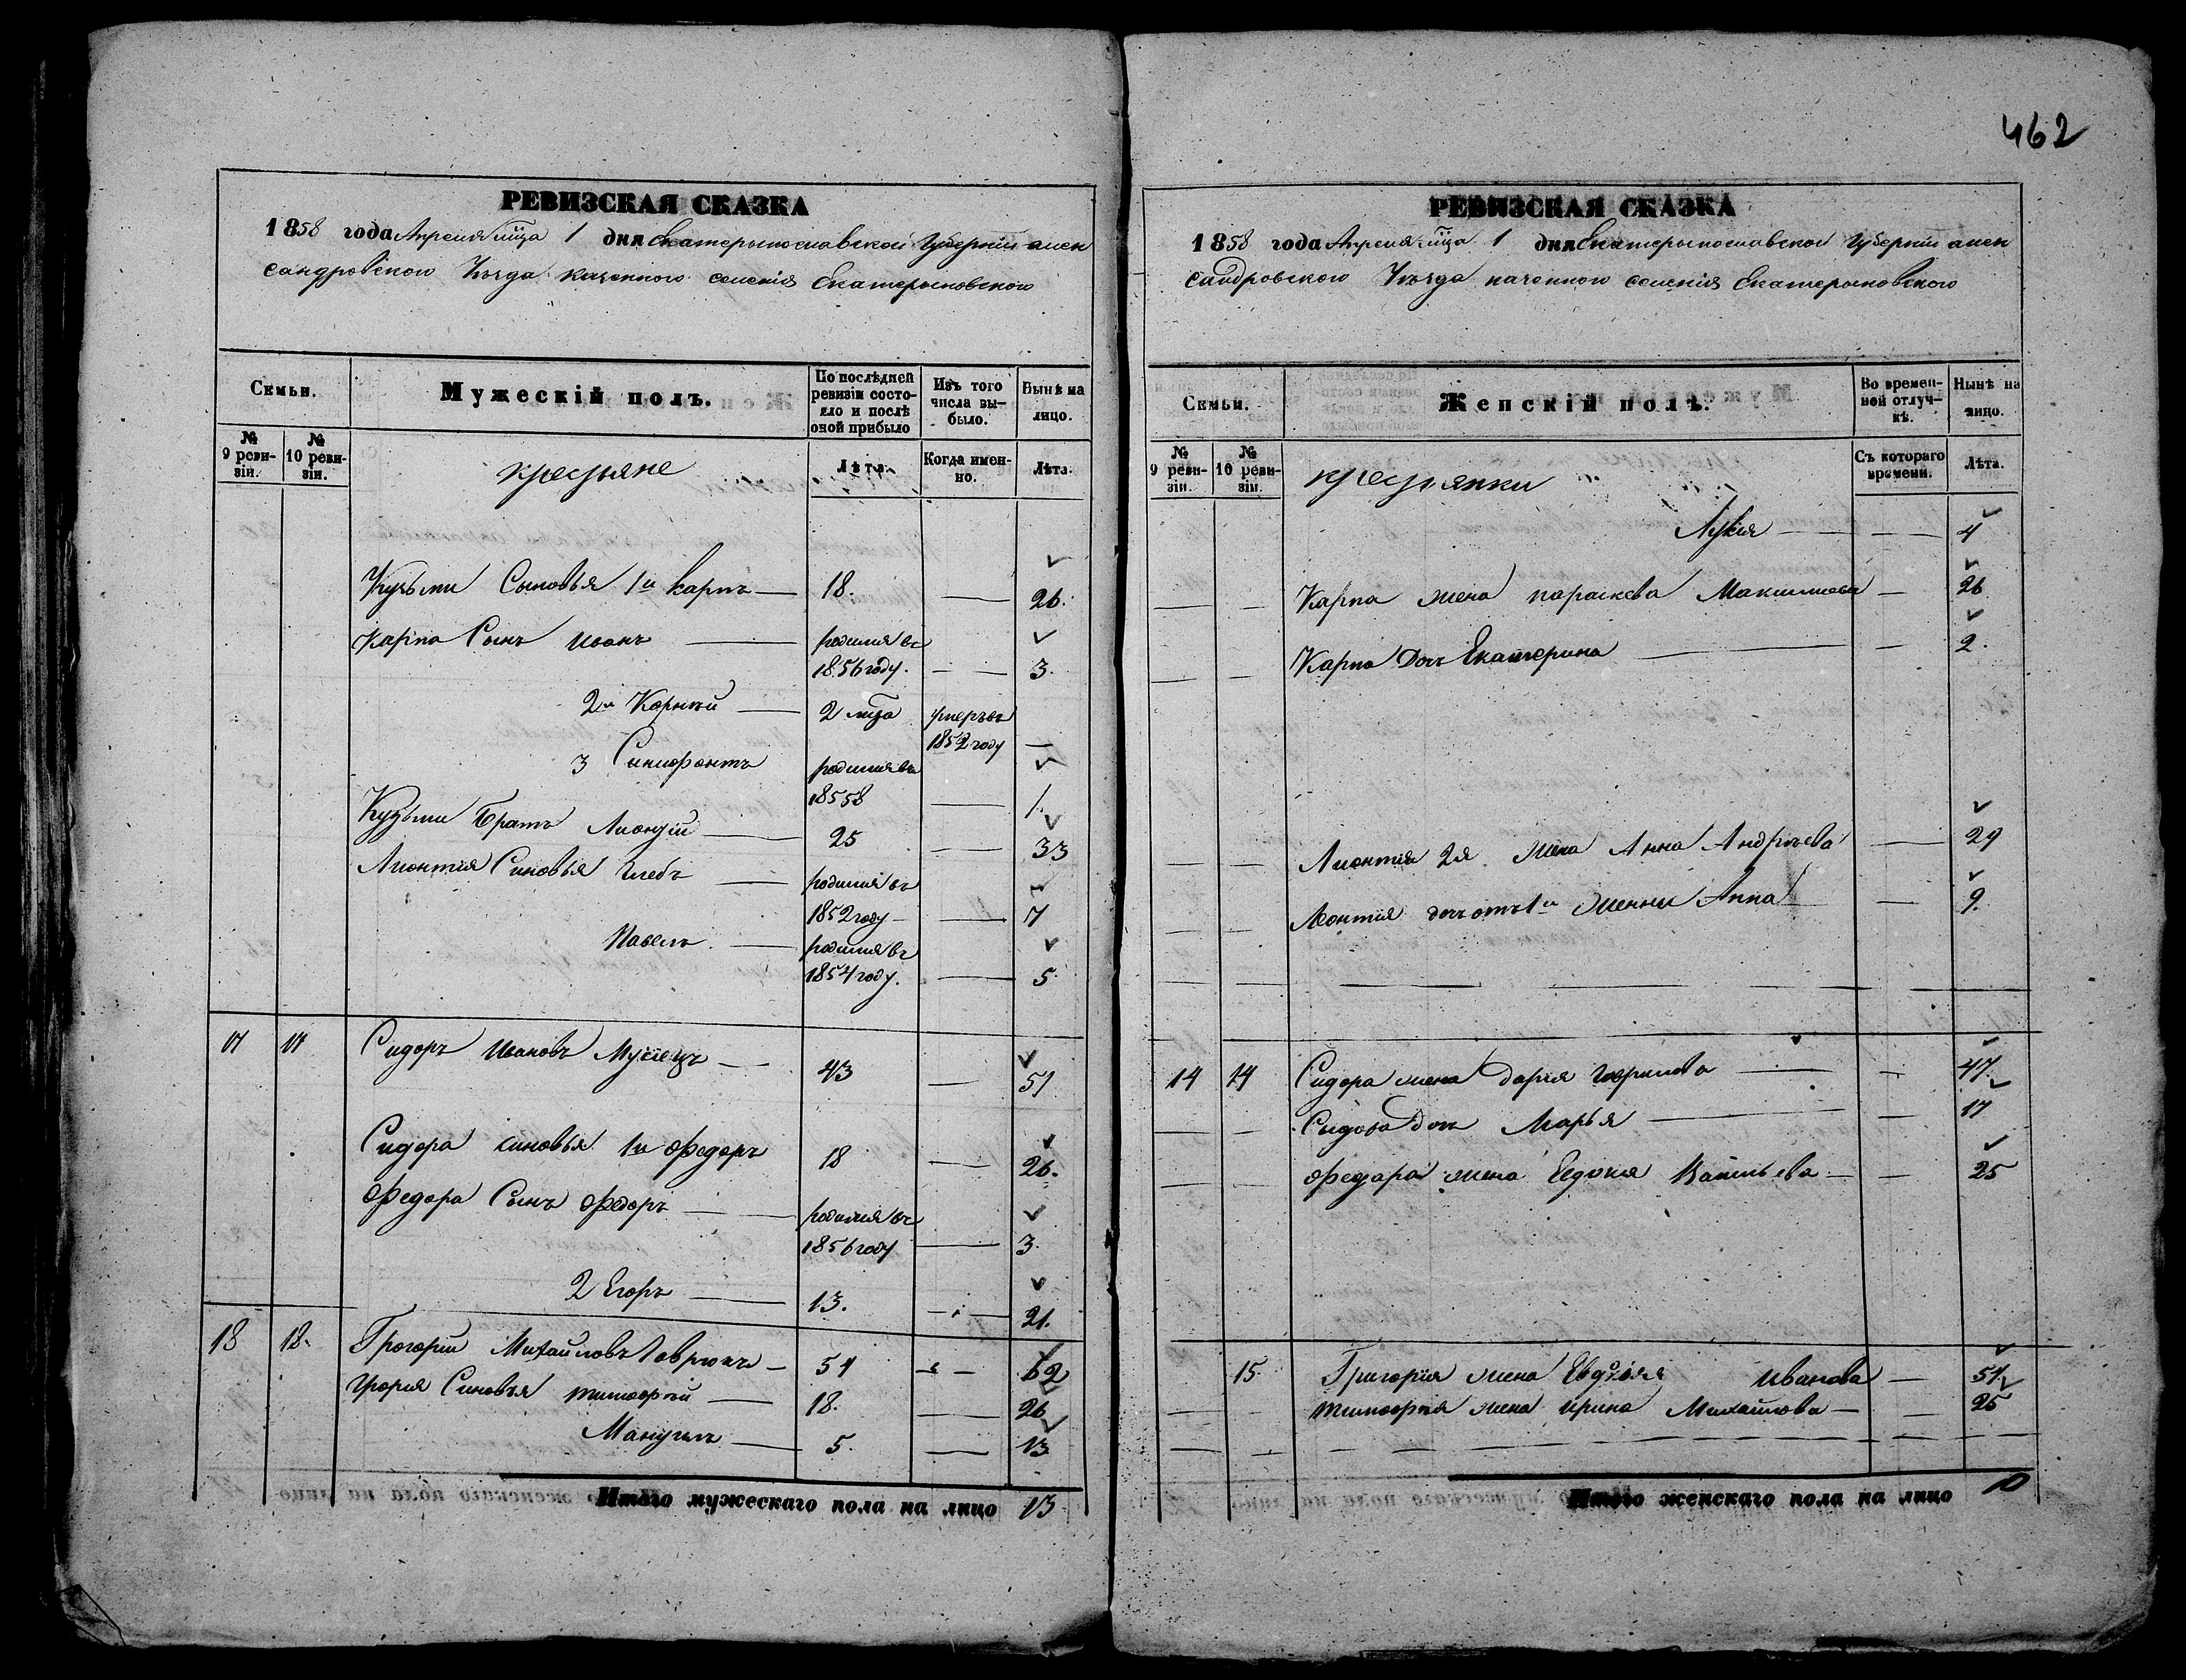 462
РЕВИЗСКАЯ СКАЗКА
1858 года Апреля мца 1 дня Екатерынославской Губерніи алек
сандровского Уѣзда казенного селенія Екатерыновского
Семьи.
Мужескій полъ.
По послѣдней ревизіи состояло и послѣ оной прибыло
Изъ того числа выбыло.
Нынѣ на лицо.
№ 9 ревизіи.
№ 10 ревизіи.
крестьяне
Лѣта.
Когда именно.
Лѣта.
Кузьми Сыновья 1й Карпъ — 18. — 26.
Карпа Сынъ Иванъ — родился въ 1856 году. — 3.
2й Корнѣй — 2 лѣта умеръ въ 1852 году —
3 — родился въ 1858 — 1.
Кузьми Братъ — 25 — 33
Лионтія Синовья Глебъ — родился въ 1852 году — 7
Павелъ — родился въ 1854 году. — 5
17 17 Сидоръ Ивановъ — 43 — 51
Сидора синовья 1й Федоръ 18 — 26.
Федора Сынъ Федоръ — родился въ 1856 году — 3.
2 Егоръ — 13. — 21.
18 18. Грогорий Михайловъ Гаврюкъ — 54 — 62
Синовья тимофѣй — 18. — 26
Мануилъ — 5. — 13
Итого мужескаго пола на лицо 13
РЕВИЗСКАЯ СКАЗКА
1858 года Апреля мца 1 дня Екатерынославской Губерніи алек
сандровского Уѣзда казенного селенія Екатерыновского
Семьи.
Женскій полъ.
Во временной отлучкѣ.
Нынѣ на лицо.
№ 9 ревизіи.
№ 10 ревизіи.
крестьянки
Съ котораго времени.
Лѣта.
Лукія — — 4
Карпа жена параскева Максимова — 26
Карпа Дочь Екатерина — — 2.
Лионтія 2я жена Анна Андрѣева — 29
Леонтія дочь отъ 1й женны Анна — 9.
14 14 Сидора жена Дарія Гаврилова — — 47.
Сидора Дочь Марья — — 17
Федора жена Евдокия Васильева — — 25
15. Григорія жена Евдокія Иванова — 51
тимофѣя жена Ирина Михайлова — — 25
Итого женскаго пола на лицо 10